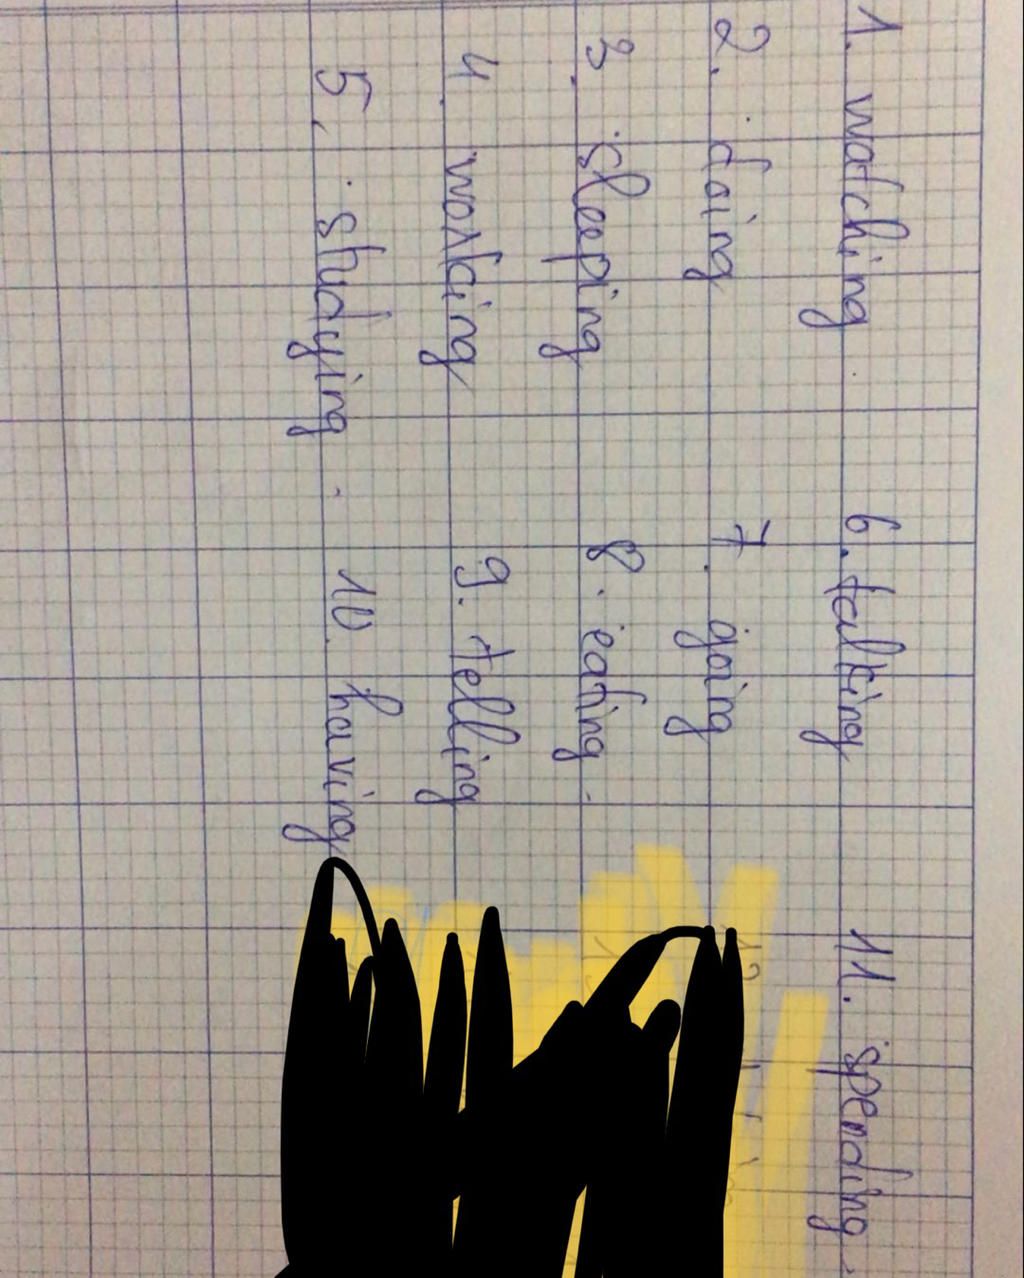 1. watching
2. doing
3. sleeping
4. working
5. studying
6. talking
7. going
8. eating
9. telling
10. having
11. spending